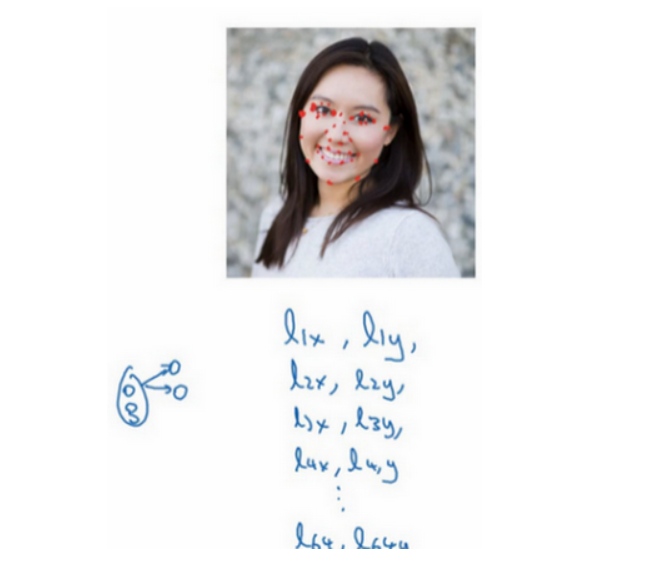 l1x , l1y,
l2x, l2y,
l3x , l3y,
l4x, l4,y
⋮
l64, l64y